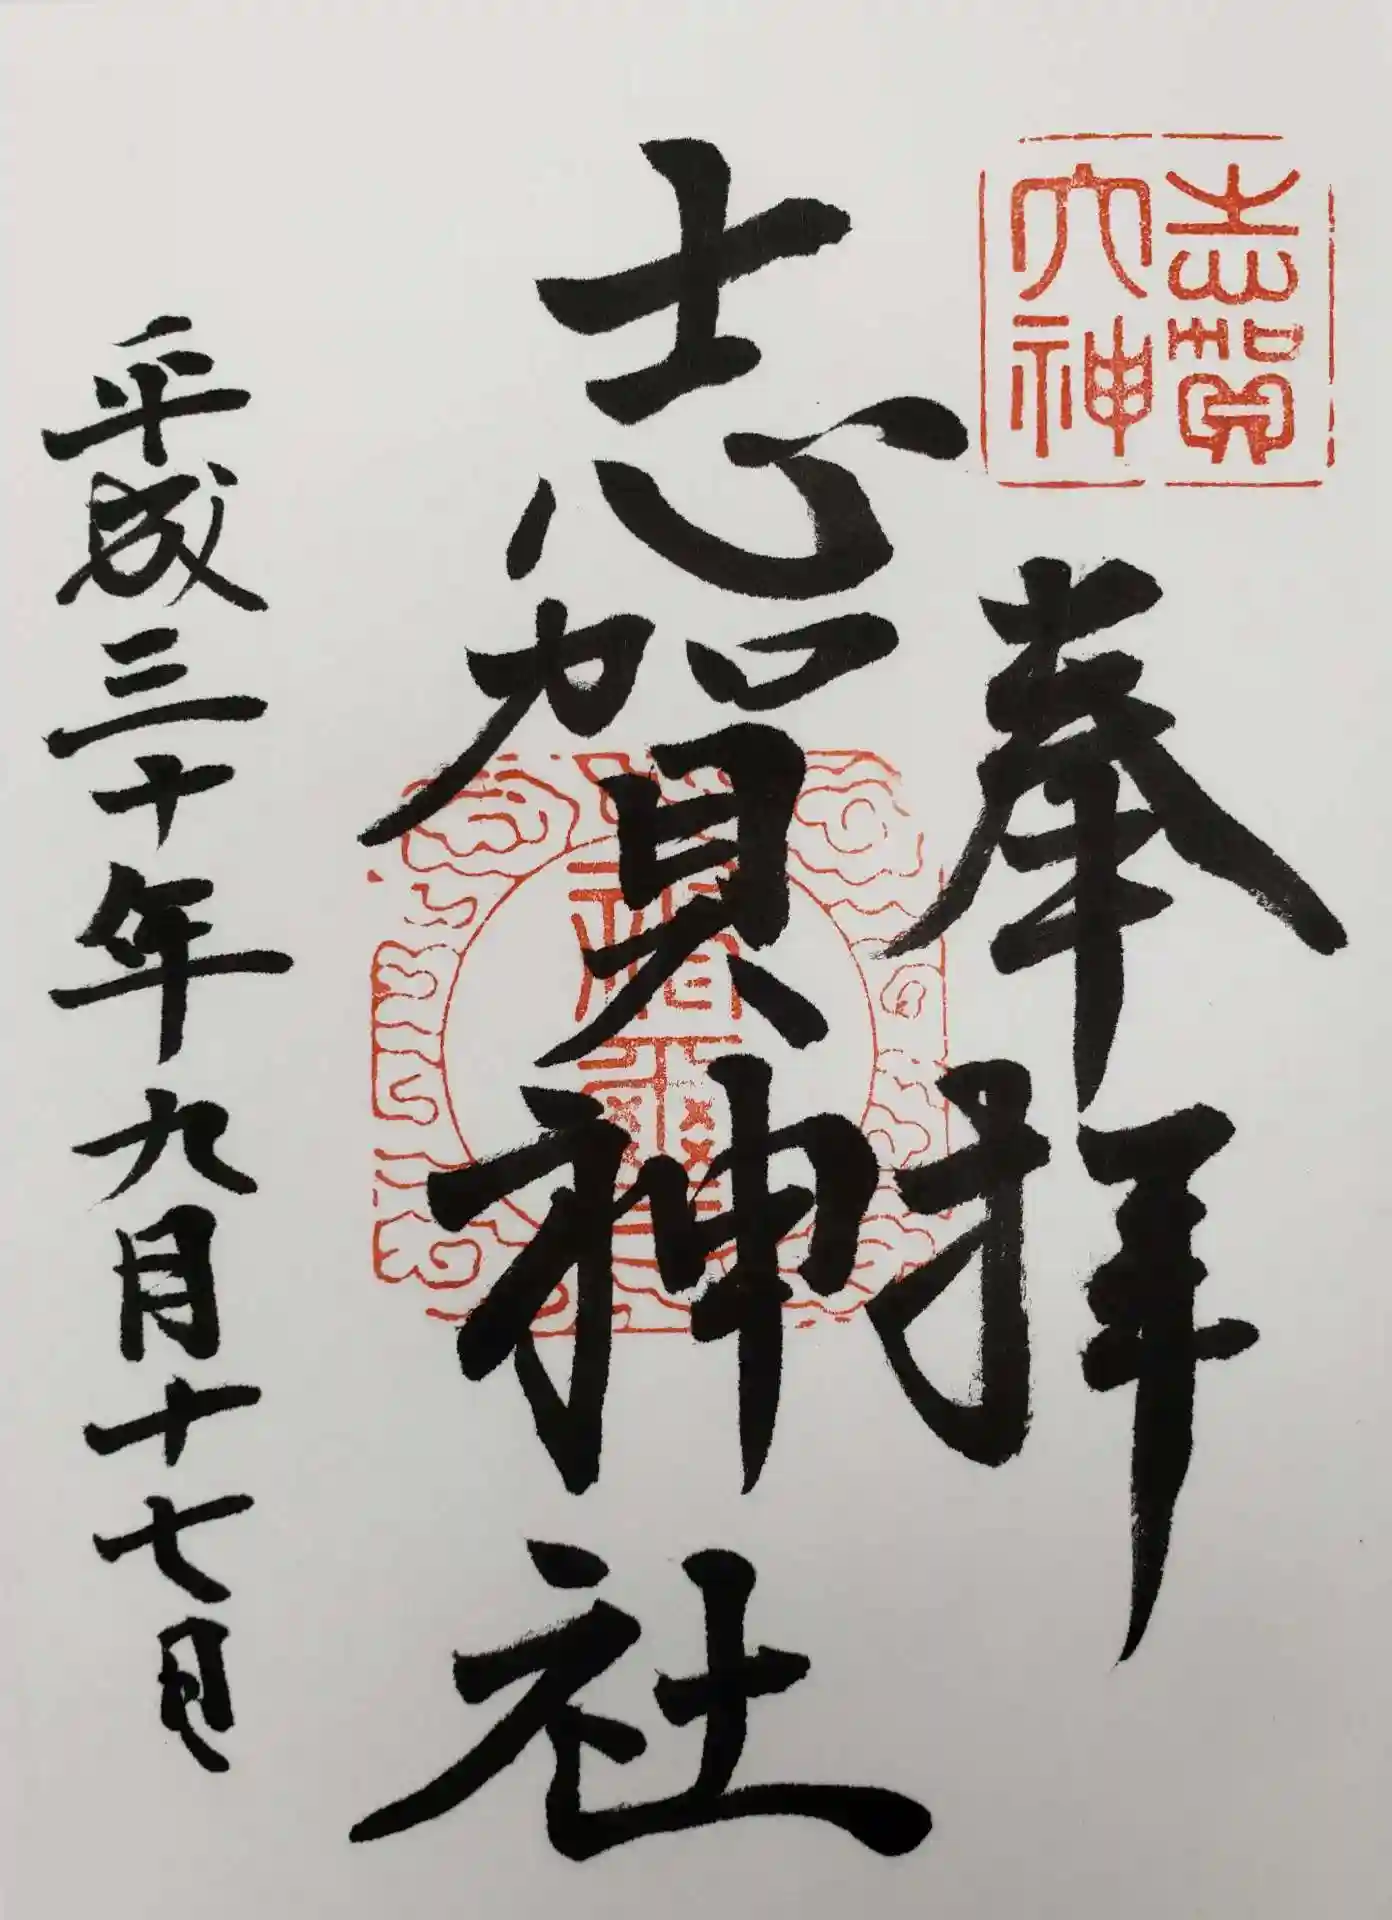 志賀
大神
奉拝
志賀神社
平成三十年九月十七日